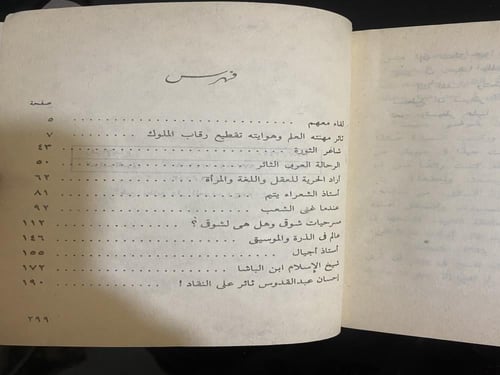 فهرس
صفحة
لقاء معهم . . . . . . . . . . . . . . . . . . . . ٥
ثائر مهنته العلم وهوايته تقطيع رقاب الملوك . . . . . . ٧
شاعر الثورة . . . . . . . . . . . . . . . . . . . . ٤٣
الرحالة العربى الثائر . . . . . . . . . . . . . . . . ٥٠
أراد الحرية للعقل واللغة والمرأة . . . . . . . . . . . ٦٢
أستاذ الشعراء يتيم . . . . . . . . . . . . . . . . . ٨١
عندما غنى الشعب . . . . . . . . . . . . . . . . . ٩٢
مسرحيات شوقى وهل هى لشوقى ؟ . . . . . . . . . . ١١٢
عالم فى الذرة والموسيقى . . . . . . . . . . . . . . ١٤٦
أستاذ أجيال . . . . . . . . . . . . . . . . . . . . ١٥٥
شيخ الإسلام ابن الباشا . . . . . . . . . . . . . . . ١٧٢
إحسان عبدالقدوس ثائر على النقاد ! . . . . . . . . . ١٩٠
٢٩٩